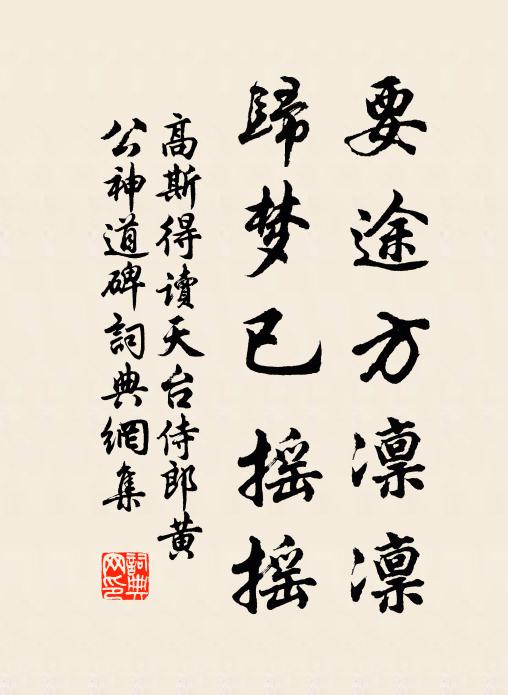 要途方凛凛
歸梦已摇摇
高斯得读天台侍郎黄
公神道碑詞典網集
詞典
网印